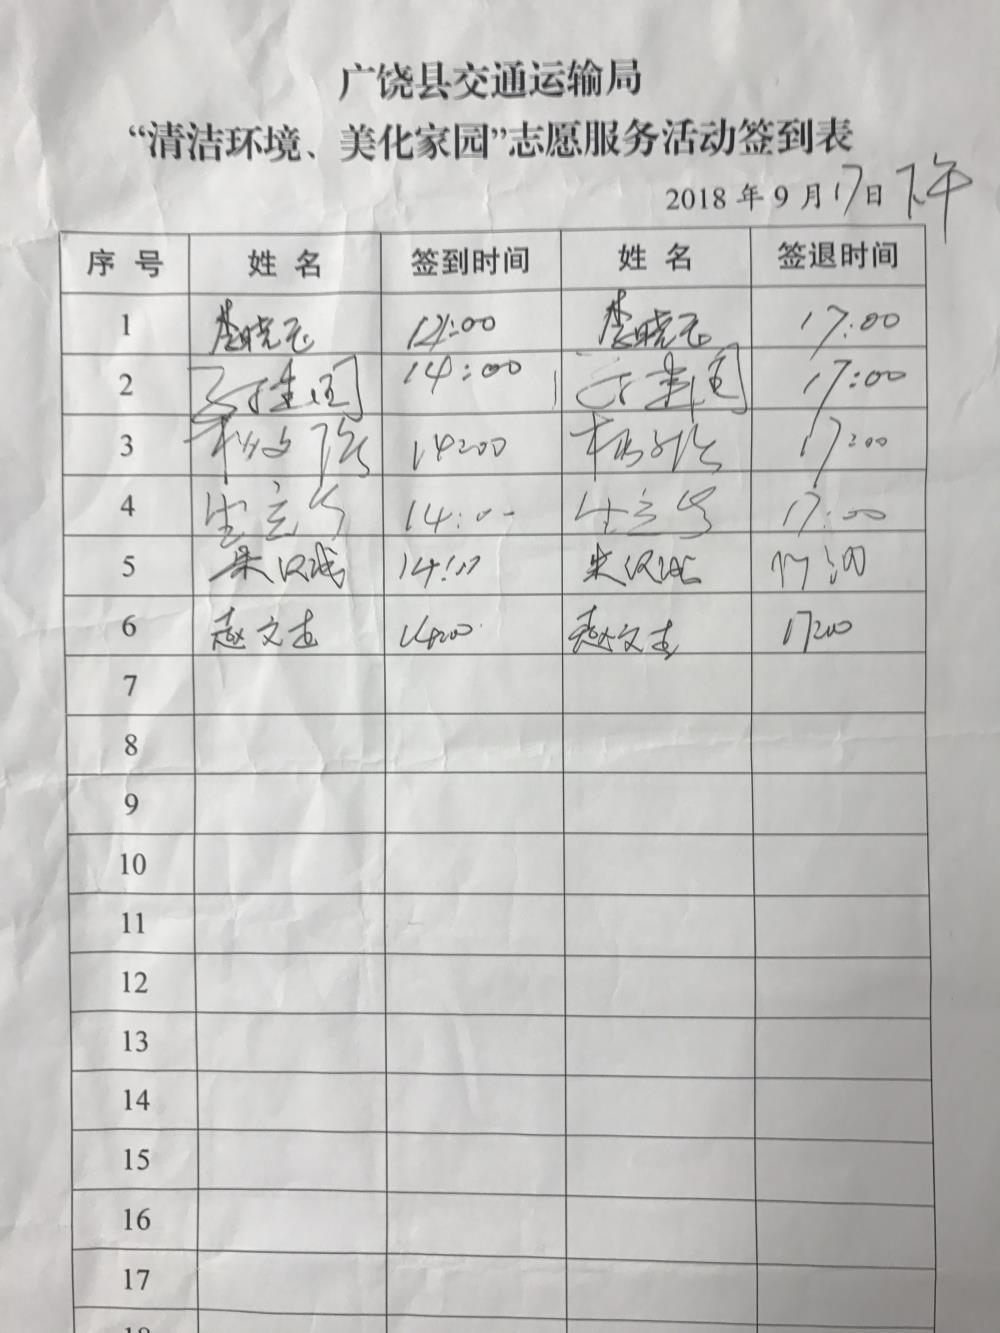 广饶县交通运输局
“清洁环境、美化家园”志愿服务活动签到表
2018 年 9 月 17 日 下午
序 号 姓 名 签到时间 姓 名 签退时间
1 李晓玉 14:00 李晓玉 17:00
2 14:00 17:00
3 14:00 17:00
4 14:00 17:00
5 14:00 17:00
6 赵文志 14:00 赵文志 17:00
7
8
9
10
11
12
13
14
15
16
17
18